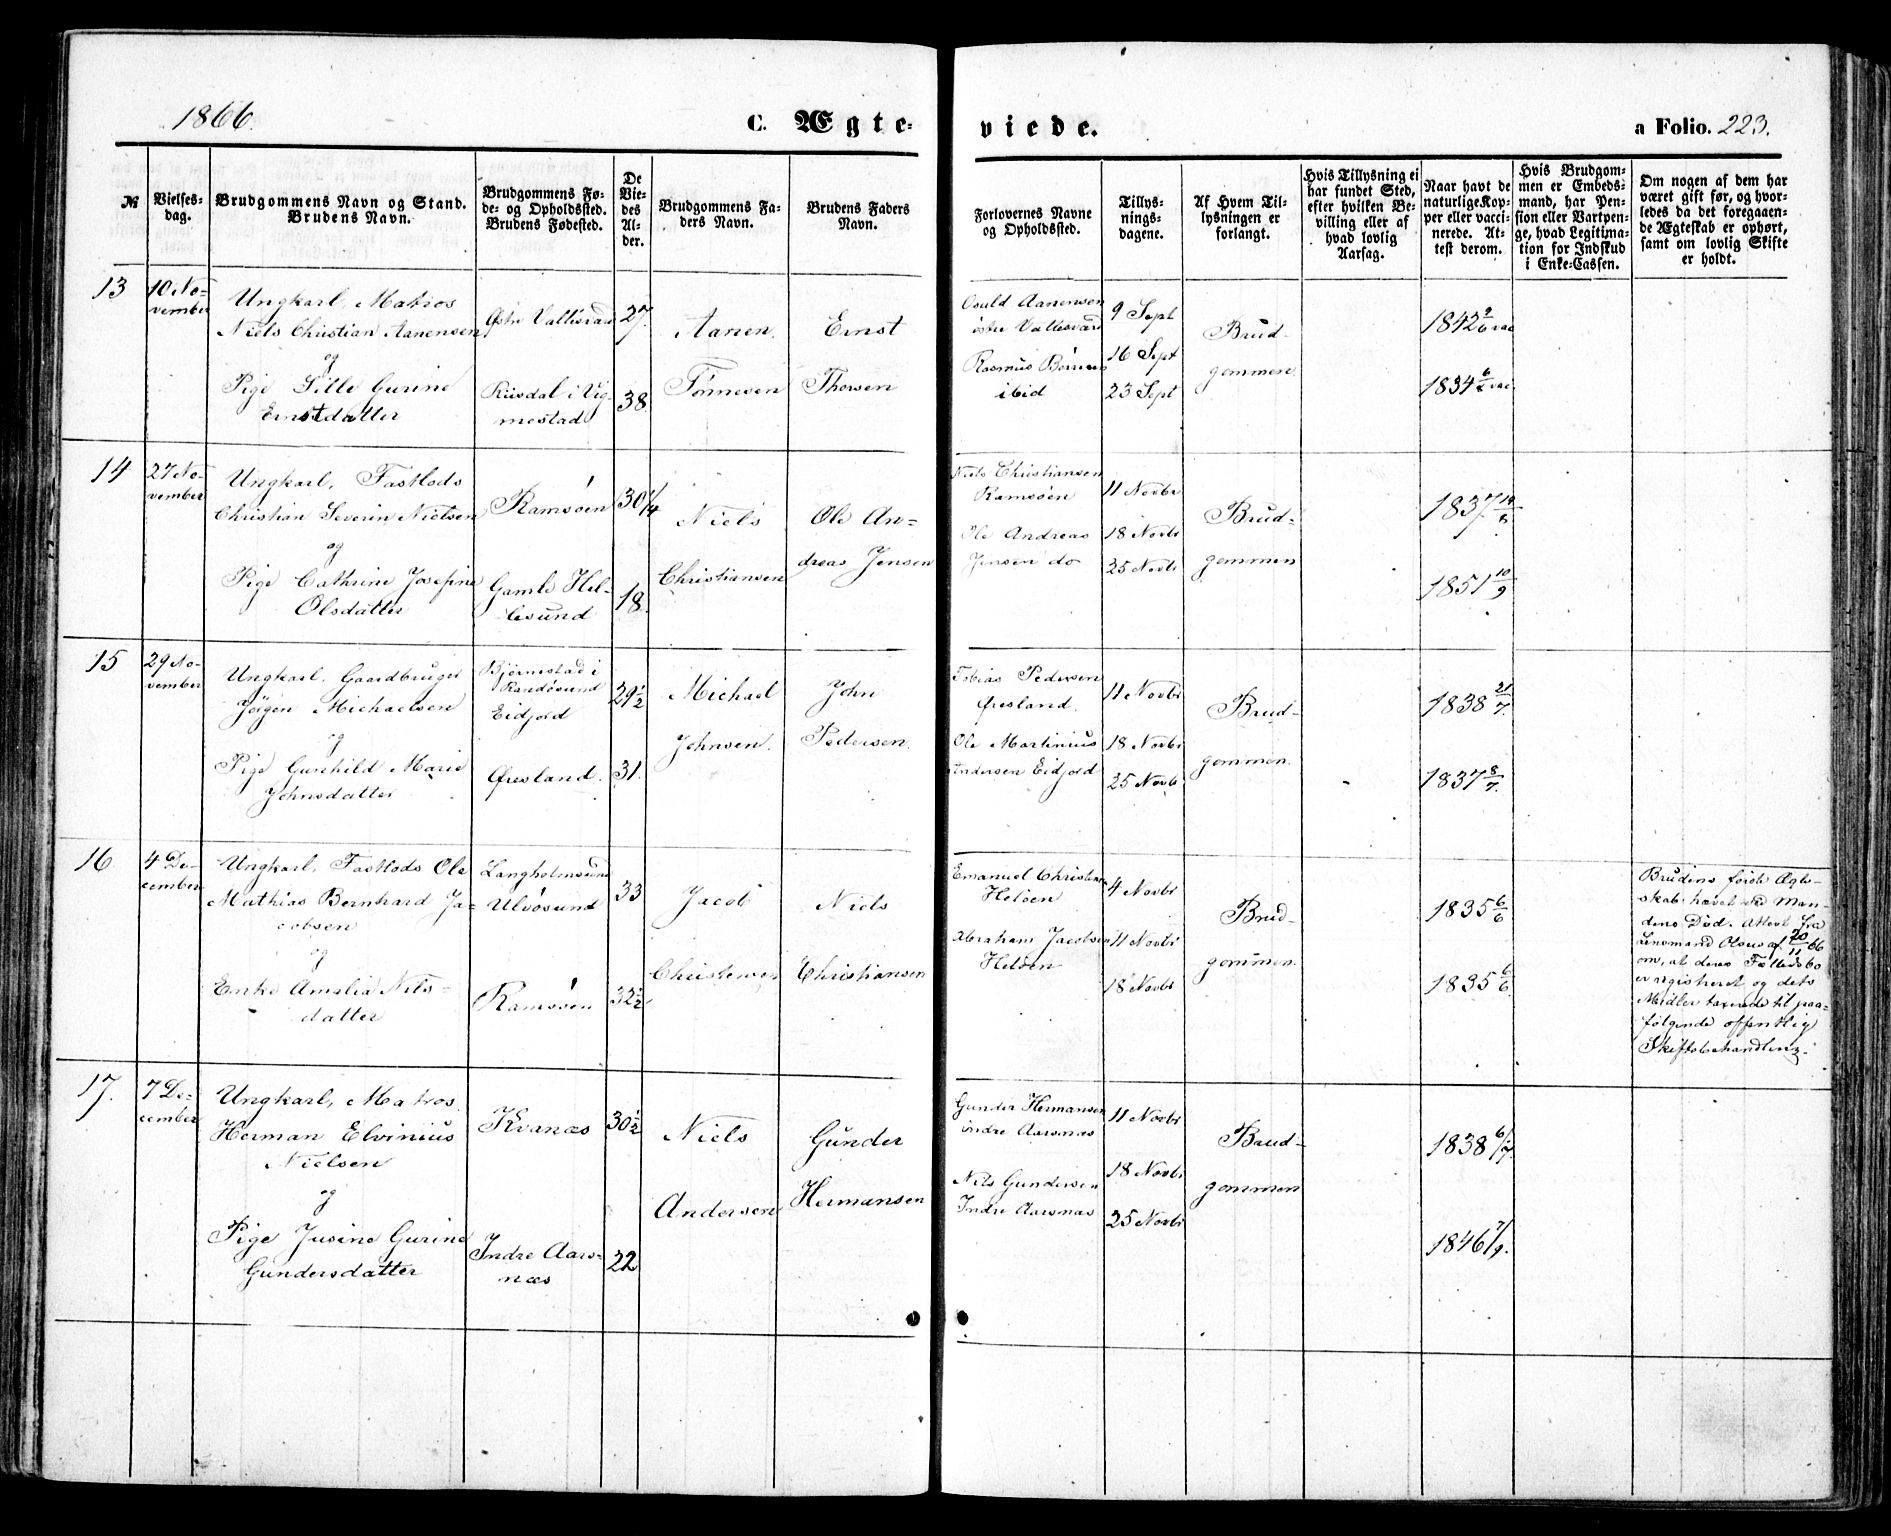 1866.
C. Ægte-
viede.
a Folio. 223.
№
Vielses-
dag.
Brudgommens Navn og Stand.
Brudens Navn.
Brudgommens Fø-
de- og Opholdsted.
Brudens Fødested.
De
Vie-
des
Al-
der.
Brudgommens Fa-
ders Navn.
Brudens Faders
Navn.
Forlovernes Navne
og Opholdsted.
Tillys-
nings-
dagene.
Af Hvem Til-
lysningen er
forlangt.
Hvis Tillysning ei
har fundet Sted,
efter hvilken Be-
villing eller af
hvad lovlig
Aarsag.
Naar havt de
naturlige Kop-
per eller vacci-
nerede. At-
test derom.
Hvis Brudgom-
men er Embeds-
mand, har Pen-
sion eller Vartpen-
ge, hvad Legitima-
tion for Indskud
i Enke-Cassen.
Om nogen af dem har
været gift før, og hvor-
ledes da det foregaaen-
de Ægteskab er ophørt,
samt om lovlig Skifte
er holdt.
13
10 No-
vember
Ungkarl, Matros
Niels Christian Aanensen
og
Pige Sille Gurine
Ernstdatter
Østre Vallesvær
Riisdal i Vig-
mostad
27.
38.
Aanen
Tønnesen
Ernst
Thorsen
Osuld Aanensen
østre Vallesværd
Rasmus
ibid
9 Sept
16 Sept
23 Sept
Brud-
gommen
1842 9/6 vac
1834 6/6 vac
14
27 No-
vember
Ungkarl, Fastlods
Christian Severin Nielsen
og
Pige Cathrine Josefine
Olsdatter
Ramsøen
Gamle Hel-
lesund
30 1/4
18.
Niels
Christiansen
Ole An-
dreas Jensen
Niels Christiansen
Ramsøen
Ole Andreas
Jensen do
11 Novbr
18 Novbr
25 Novbr
Brud-
gommen
1837
1851 10/9
15
29 No-
vember
Ungkarl, Gaardbruger
Jørgen Michaelsen
og
Pige Gunhild Marie
Johnsdatter
Bjørnestad i
Randøsund
Eidjord
Øresland.
29 1/2
31.
Michael
Johnsen.
John
Pedersen.
Tobias Pedersen
Øresland.
Ole Martinius
Andersen Eidjord
11 Novbr
18 Novbr
25 Novb
Brud-
gommen.
1838 21/7.
1837 8/7.
16
4 De-
cember
Ungkarl, Fastlods Ole
Mathias Bernhard Ja-
cobsen
og
Enke Amalia Nils-
datter
Langholmsund
Ulvøsund
Ramsøen
33
32 1/2
Jacob
Christensen
Niels
Christiansen
Emanuel Christensen
Heløen
Abraham Jacobsen
Heløen
4 Novbr
11 Novbr
18 Novbr
Brud-
gommen.
1835 6/6
1835 6/6
Brudens første Ægte-
skab hævet ved Man-
dens Død. Attest fra
Lensmand Olsen af 20/11 66
om, at deres Fællesbo
er registreret og dets
Midler taxerede til paa-
følgende offentlig
Skiftebehandling.
17.
7 De-
cember
Ungkarl, Matros
Herman Elvinius
Nielsen
og
Pige Jusine Gurine
Gundersdatter
Kvanæs
Indre Aaros-
næs
30 1/2
22
Niels
Andersen
Gunder
Hermansen
Gunder Hermansen
indre Aarsnæs
Nils Gundersen
Indre Aarsnæs
11 Novbr
18 Novbr
25 Novbr
Brud-
gommen
1838 6/7.
1846 7/9.